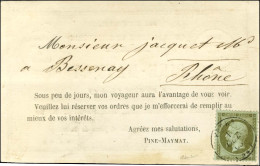 Monsieur Jacquet Md
a Bessenay
Rhône
Sous peu de jours, mon voyageur aura l'avantage de vous voir.
Veuillez lui réserver vos ordres que je m'efforcerai de remplir au
mieux de vos intérêts.
Agréez mes salutations,
PINE-MAYMAT.